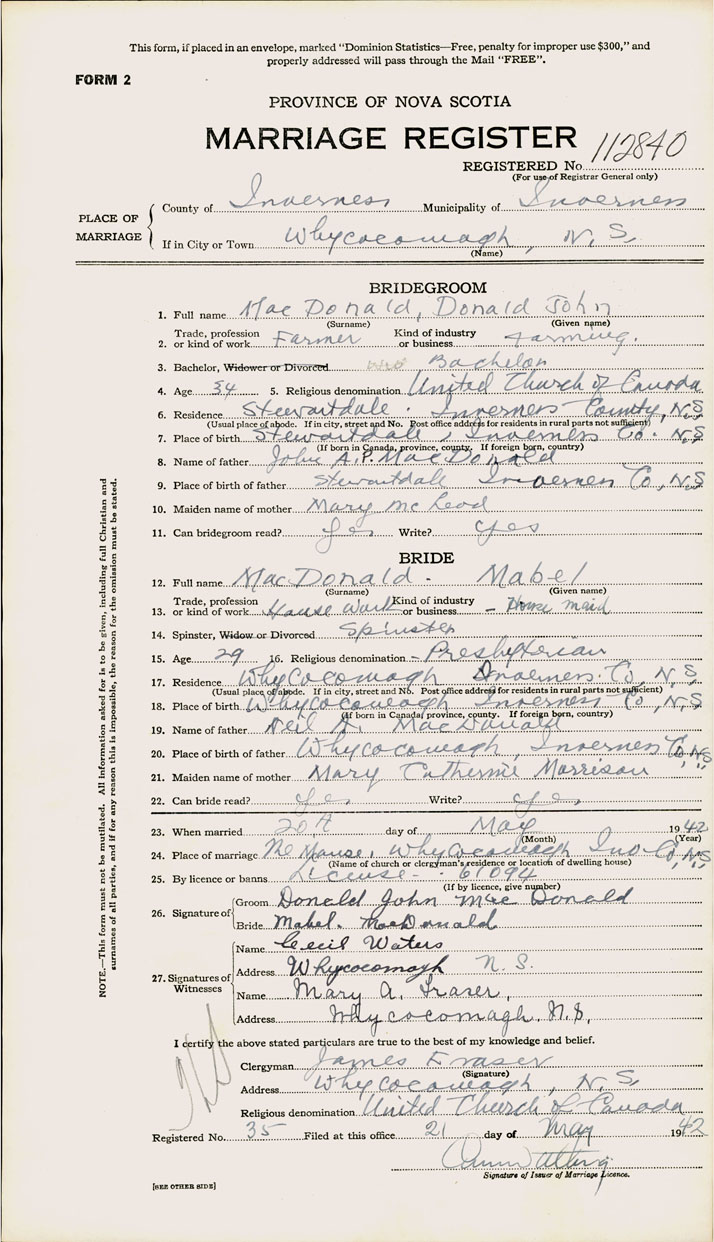 This form, if placed in an envelope, marked "Dominion Statistics—Free, penalty for improper use $300," and
properly addressed will pass through the Mail "FREE".
FORM 2
PROVINCE OF NOVA SCOTIA
MARRIAGE REGISTER
REGISTERED No. 112840
(For use of Registrar General only)
PLACE OF MARRIAGE
County of Inverness Municipality of Inverness
If in City or Town Whycocomagh, N.S.
(Name)
BRIDEGROOM
1. Full name MacDonald, Donald John
(Surname) (Given name)
2. Trade, profession or kind of work Farmer Kind of industry or business Farming.
3. Bachelor, Widower or Divorced Bachelor
4. Age 34 5. Religious denomination United Church of Canada
6. Residence Stewartdale. Inverness County, N.S
(Usual place of abode. If in city, street and No. Post office address for residents in rural parts not sufficient)
7. Place of birth Stewartdale, Inverness Co. N.S
(If born in Canada, province, county. If foreign born, country)
8. Name of father John A.P. MacDonald
9. Place of birth of father Stewartdale Inverness Co, N.S
10. Maiden name of mother Mary McLeod
11. Can bridegroom read? Yes Write? Yes
BRIDE
12. Full name MacDonald. Mabel
(Surname) (Given name)
13. Trade, profession or kind of work House Work Kind of industry or business - House maid
14. Spinster, Widow or Divorced Spinster
15. Age 29 16. Religious denomination - Presbyterian
17. Residence Whycocomagh Inverness. Co, N.S.
(Usual place of abode. If in city, street and No. Post office address for residents in rural parts not sufficient)
18. Place of birth Whycocomagh Inverness Co, N.S
(If born in Canada, province, county. If foreign born, country)
19. Name of father Neil A. MacDonald
20. Place of birth of father Whycocomagh, Inverness Co, N.S
21. Maiden name of mother Mary Catherine Morrison ,,
22. Can bride read? Yes Write? Yes
23. When married 20th day of May 1942
(Month) (Year)
24. Place of marriage The Manse, Whycocomagh Inv. Co, N.S
(Name of church or clergyman's residence or location of dwelling house)
25. By licence or banns License - 61094
(If by licence, give number)
26. Signature of
Groom Donald John MacDonald
Bride Mabel. MacDonald
27. Signatures of Witnesses
Name Cecil Waters
Address Whycocomagh N.S.
Name Mary A. Fraser,
Address Whycocomagh. N.S.
I certify the above stated particulars are true to the best of my knowledge and belief.
Clergyman James Fraser
(Signature)
Address Whycocomagh, N.S.
Religious denomination United Church of Canada
Registered No. 35 Filed at this office 21 day of May 1942
Signature of Issuer of Marriage Licence.
[SEE OTHER SIDE]
NOTE.—This form must not be mutilated. All information asked for is to be given, including full Christian and
surnames of all parties, and if for any reason this is impossible, the reason for the omission must be stated.